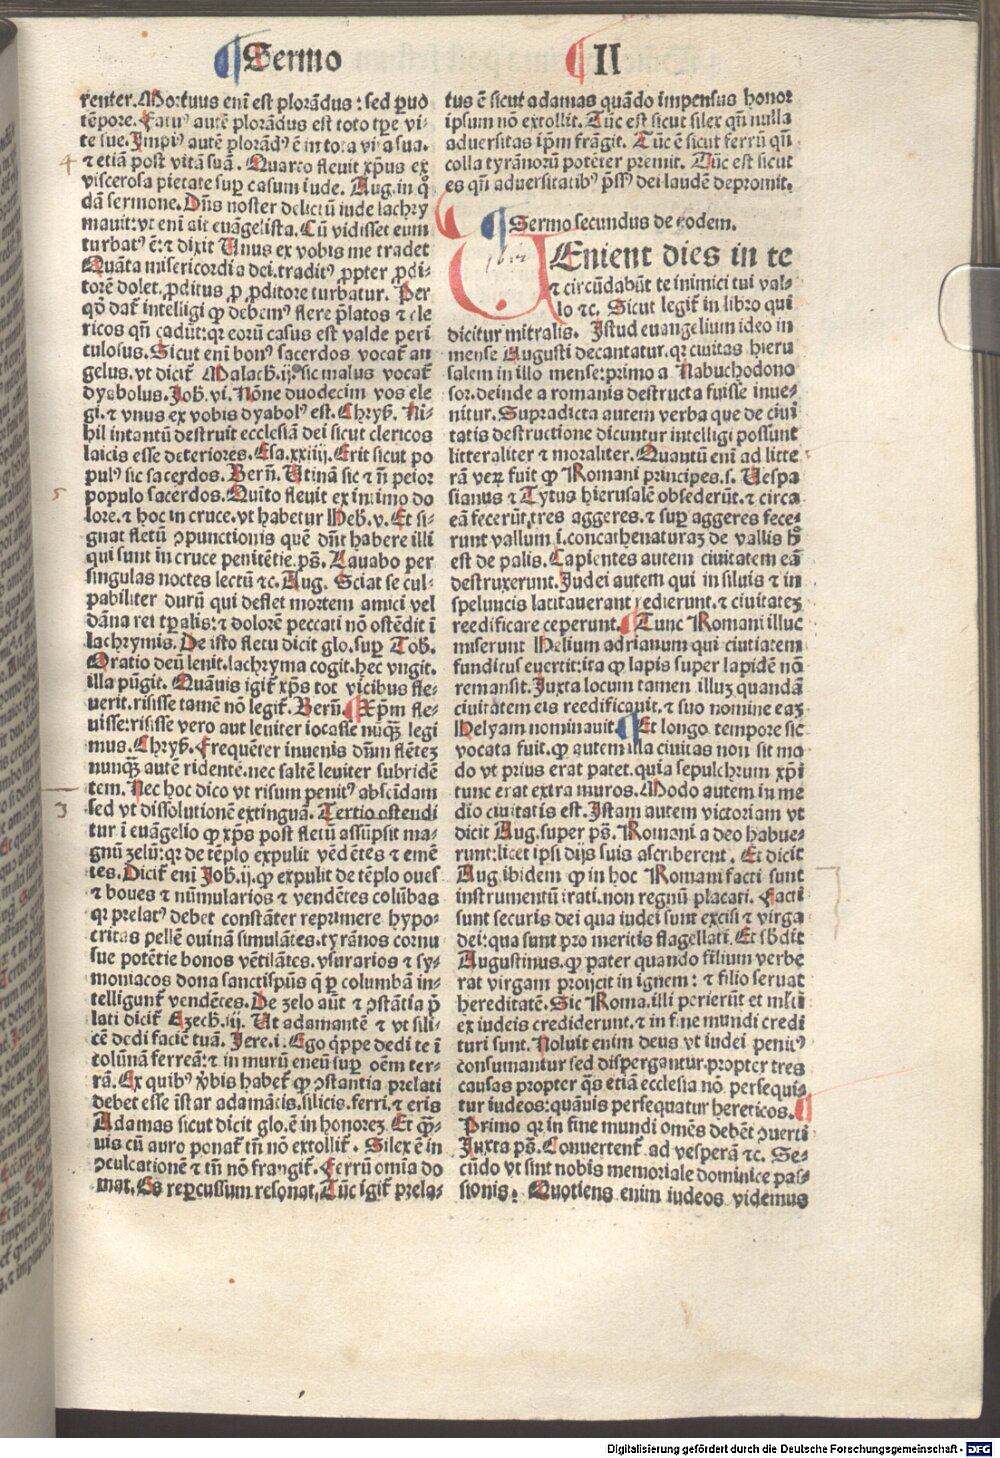 ¶ Sermo ¶ II
renter. Mortuus eni est plorādus: sed paruo
tēpore. Fatuꝰ autē plorādus est toto tp̄e vi-
te sue. Impiꝰ autē plorādꝰ ē in tota vita sua.
⁊ etiā post vitā suā. Quarto fleuit xp̄us ex
viscerosa pietate suꝑ casum iude. Aug. in q̊
dā sermone. Dn̄s noster delictū iude lachry
mauit: vt eni ait euāgelista. Cū vidisset eum
turbatꝰ ē: ⁊ dixit Unus ex vobis me tradet
Quāta misericordia dei. traditꝰ ꝓpter ꝓdi-
torē dolet. ꝓditus ꝓ ꝓditore turbatur. Per
qd̄ daṫ intelligi ꝙ debemꝰ flere p̄latos ⁊ cle
ricos qn̄ cadūt: qꝛ eorū casus est valde peri
culosus. Sicut eni bonꝰ sacerdos vocaṫ an
gelus. vt diciṫ Malach. ij. sic malus vocaṫ
dyabolus. Joh. vi. Nōne duodecim vos ele
gi. ⁊ vnus ex vobis dyabolꝰ est. Chryẞ. Ni-
hil intantū destruit ecclesiā dei sicut clericos
laicis esse deteriores. Esa. xxiiij. Erit sicut po
pulꝰ sic sacerdos. Bern̄. Utinā sic ⁊ n̄ peior
populo sacerdos. Quīto fleuit ex intimo do
5
lore. ⁊ hoc in cruce. vt habetur Heb. v. Et si-
gnat fletū ꝯpunctionis quē dn̄t habere illi
qui sunt in cruce penitētie. ps̄. Lauabo per
singulas noctes lectū ⁊c. Aug. Sciat se cul-
pabiliter durū qui deflet mortem amici vel
dāna rei tp̄alis: ⁊ dolorē peccati nō ostēdit ī
lachrymis. De isto fletu dicit glo. suꝑ Tob.
Oratio deū lenit. lachryma cogit. hec vngit.
illa pūgit. Quāuis igiṫ xp̄s tot vicibus fle-
uerit. risisse tamē nō legiṫ. Bern̄. ¶ Xp̄m fle-
uisse: risisse vero aut leuiter iocasse nūqꝫ legi
mus. Chryẞ. Frequēter inuenis dn̄m flētēꝫ
nunqꝫ autē ridentē. nec saltē leuiter subridē
tem. Nec hoc dico vt risum penitꝰ abscidam
3
sed vt dissolutionē extinguā. Tertio ostendi
tur ī euāgelio ꝙ xp̄s post fletū assūpsit ma-
gnū zelū: qꝛ de tēplo expulit vēdētes ⁊ emē
tes. Diciṫ eni Joh. ij. ꝙ expulit de tēplo oues
⁊ boues ⁊ nūmularios ⁊ vendētes colūbas
qꝛ prelatꝰ debet constāter reprimere hypo-
critas pellē ouinā simulātes. tyrānos cornu
sue potētie bonos vētilātes. vsurarios ⁊ sy-
moniacos dona sanctispūs q̄ ꝑ columbā in-
telligunṫ vendētes. De zelo aūt ⁊ ꝯstātia p̄
lati diciṫ Ezech. iij. Ut adamantē ⁊ vt sili-
cē dedi faciē tuā. Jere. i. Ego q̇ppe dedi te ī
colūnā ferreā: ⁊ in murū eneū suꝑ oēm ter-
rā. Ex quibꝰ v̄bis habeṫ ꝙ ꝯstantia prelati
debet esse īstar adamātis. silicis. ferri. ⁊ eris
Adamas sicut dicit glo. ē in honoreꝫ. Et q̄ꝫ-
uis cū auro ponaṫ tn̄ nō extolliṫ. Silex ē in
ꝯculcationē ⁊ tn̄ nō frangiṫ. Ferrū omīa do
mat. Es repercussum resonat. Tūc igiṫ prela-
tus ē sicut adamas quādo impensus honor
ipsum nō extollit. Tūc est sicut silex qn̄ nulla
aduersitas ip̄m frāgit. Tūc ē sicut ferrū qn̄
colla tyrānorū potēter premit. Tūc est sicut
es qn̄ aduersitatibꝰ p̄ssꝰ dei laudē depromit.
¶ Sermo secundus de eodem.
UEnient dies in te
⁊ circūdabūt te inimici tui val-
lo ⁊c. Sicut legiṫ in libro qui
dicitur mitralis. Istud euangelium ideo in
mense Augusti decantatur. qꝛ ciuitas hieru
salem in illo mense: primo a Nabuchodono
sor. deinde a romanis destructa fuisse inue-
nitur. Supradicta autem verba que de ciui
tatis destructione dicuntur intelligi possunt
litteraliter ⁊ moraliter. Quantū eni ad litte
rā verꝫ fuit ꝙ Romani principes. s. Uespa
sianus ⁊ Tytus hierusalē obsederūt. ⁊ circa
eā fecerūt tres aggeres. ⁊ suꝑ aggeres fece-
runt vallum i. concathenaturaꝫ de vallis h̊
est de palis. Capientes autem ciuitatem eā
destruxerunt. Judei autem qui in siluis ⁊ in
speluncis latitauerant redierunt. ⁊ ciuitateꝫ
reedificare ceperunt. ¶ Tunc Romani illuc
miserunt Helium adrianum qui ciuitatem
funditus euertit: ita ꝙ lapis super lapidē nō
remansit. Juxta locum tamen illuꝫ quandā
ciuitatem eis reedificauit. ⁊ suo nomine eaꝫ
Helyam nominauit. ¶ Et longo tempore sic
vocata fuit. ꝙ autem illa ciuitas non sit mo
do vt prius erat patet. quia sepulchrum xp̄i
tunc erat extra muros. Modo autem in me
dio ciuitatis est. Istam autem victoriam vt
dicit Aug. super ps̄. Romani a deo habue-
runt: licet ipsi dijs suis ascriberent. Et dicit
Aug. ibidem ꝙ in hoc Romani facti sunt
instrumentū irati. non regnū placati. Facti
sunt securis dei qua iudei sunt excisi ⁊ virga
dei: qua sunt pro meritis flagellati. Et sb̄dit
Augustinus. ꝙ pater quando filium verbe
rat virgam proijcit in ignem: ⁊ filio seruat
hereditatē. Sic Roma. illi perierūt et ml̄ti
ex iudeis crediderunt. ⁊ in fine mundi credi
turi sunt. Noluit enim deus vt iudei penitꝰ
consumantur sed dispergantur. propter tres
causas propter q̄s etiā ecclesia nō persequi-
tur iudeos: quāuis persequatur hereticos. ¶
Primo qꝛ in fine mundi omēs debēt ꝯuerti
Juxta ps̄. Conuertenṫ ad vesperā ⁊c. Se-
cūdo vt sint nobis memoriale dominice pas-
sionis. Quotiens enim iudeos videmus
Digitalisierung gefördert durch die Deutsche Forschungsgemeinschaft - DFG